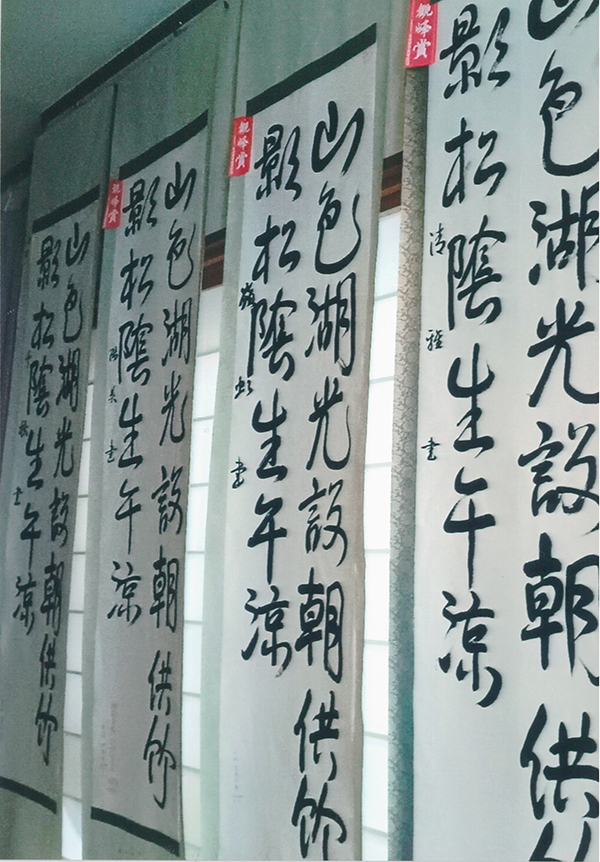 山色湖光設朝供竹
影松陰生午涼
清雅書
觀峰賞
山色湖光設朝供竹
影松陰生午涼
虹書
觀峰賞
山色湖光設朝供竹
影松陰生午涼
書
觀峰賞
山色湖光設朝供竹
影松陰生午涼
書